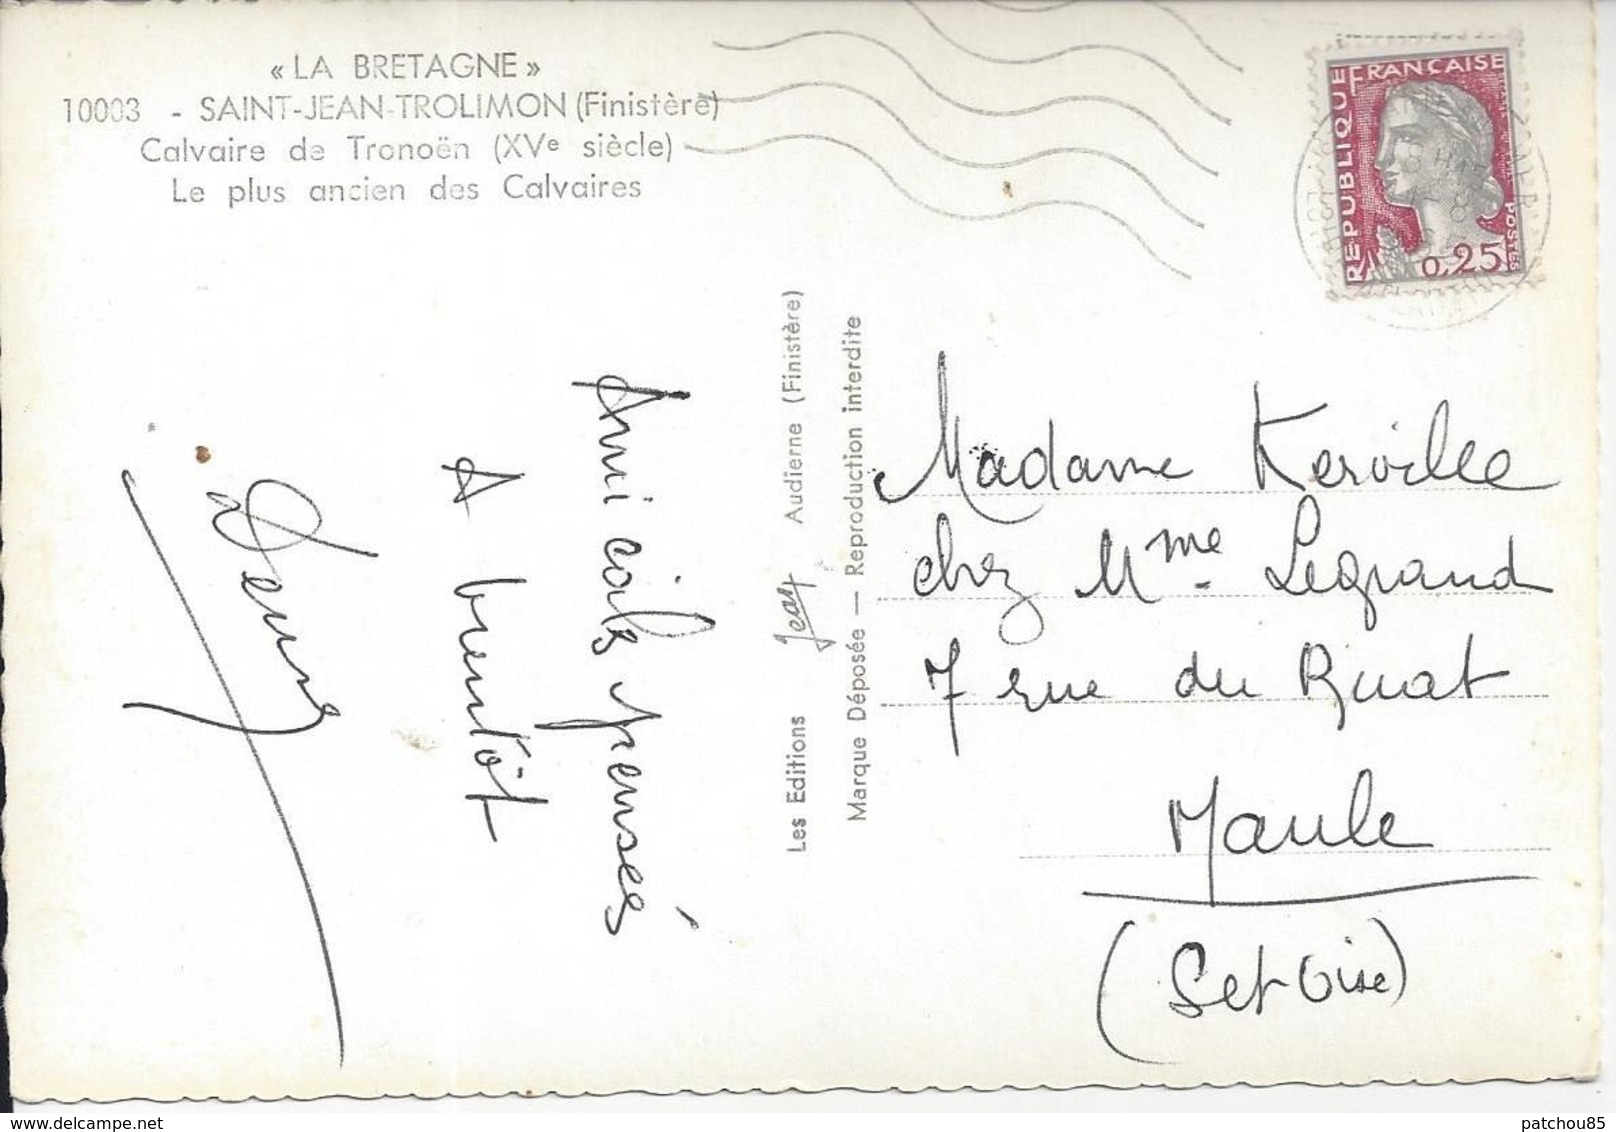 « LA BRETAGNE »
10003 - SAINT-JEAN-TROLIMON (Finistère)
Calvaire de Tronoën (XVe siècle)
Le plus ancien des Calvaires
RÉPUBLIQUE FRANÇAISE
POSTES
0,25
Amicals pensées
A bientôt
Les Editions Jean Audierne (Finistère)
Marque Déposée — Reproduction interdite
Madame Kerville
chez Mme Legrand
7 rue du Ruat
Maule
(Set Oise)
patchou85